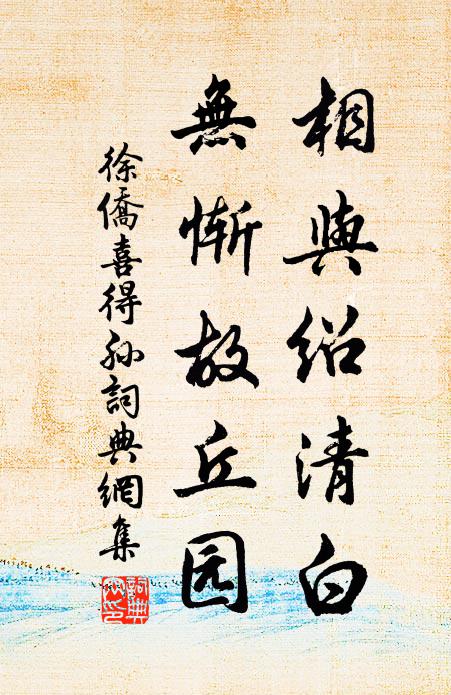 相與紹清白
無慚故丘园
徐僑喜得孙詞典網集